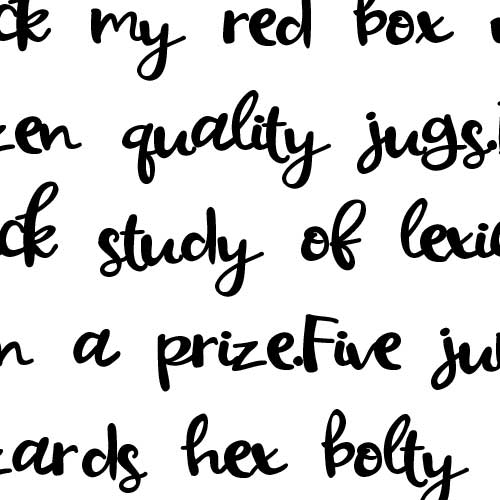 ck my red box
zen quality jugs.
ck study of lexi
n a prize.Five ju
zards hex bolty